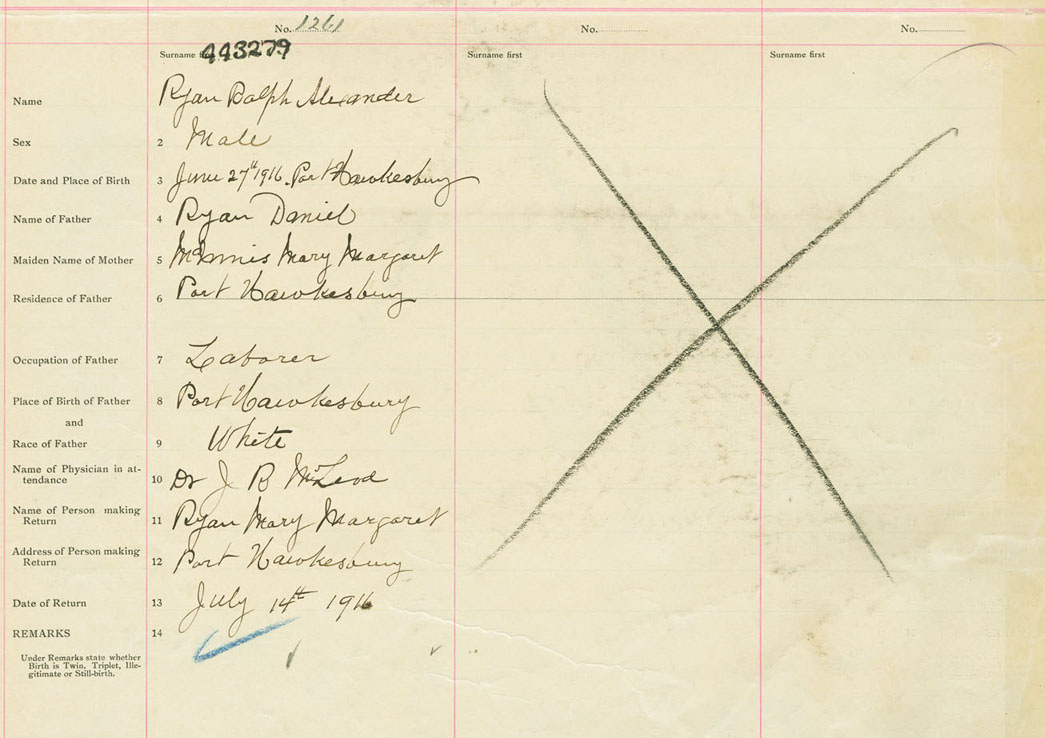 No. 1261 No. No.
Surname first 443279 Surname first Surname first
Name Ryan Ralph Alexander
Sex 2 Male
Date and Place of Birth 3 June 27th 1916. Port Hawkesbury
Name of Father 4 Ryan Daniel
Maiden Name of Mother 5 McInnis Mary Margaret
Residence of Father 6 Port Hawkesbury
Occupation of Father 7 Laborer
Place of Birth of Father 8 Port Hawkesbury
and
Race of Father 9 White
Name of Physician in at-
tendance 10 Dr J B McLeod
Name of Person making
Return 11 Ryan Mary Margaret
Address of Person making
Return 12 Port Hawkesbury
Date of Return 13 July 14th 1916
REMARKS 14
Under Remarks state whether
Birth is Twin, Triplet, Ille-
gitimate or Still-birth.